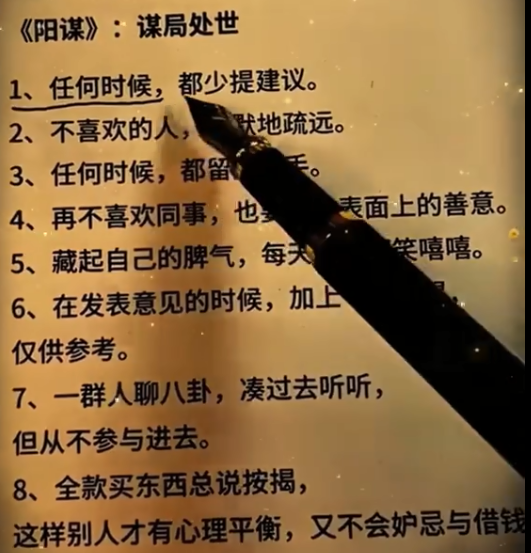 《阳谋》：谋局处世
1、任何时候，都少提建议。
2、不喜欢的人，默地疏远。
3、任何时候，都留手。
4、再不喜欢同事，也表面上的善意。
5、藏起自己的脾气，每天笑嘻嘻。
6、在发表意见的时候，加上
仅供参考。
7、一群人聊八卦，凑过去听听，
但从不参与进去。
8、全款买东西总说按揭，
这样别人才有心理平衡，又不会妒忌与借钱